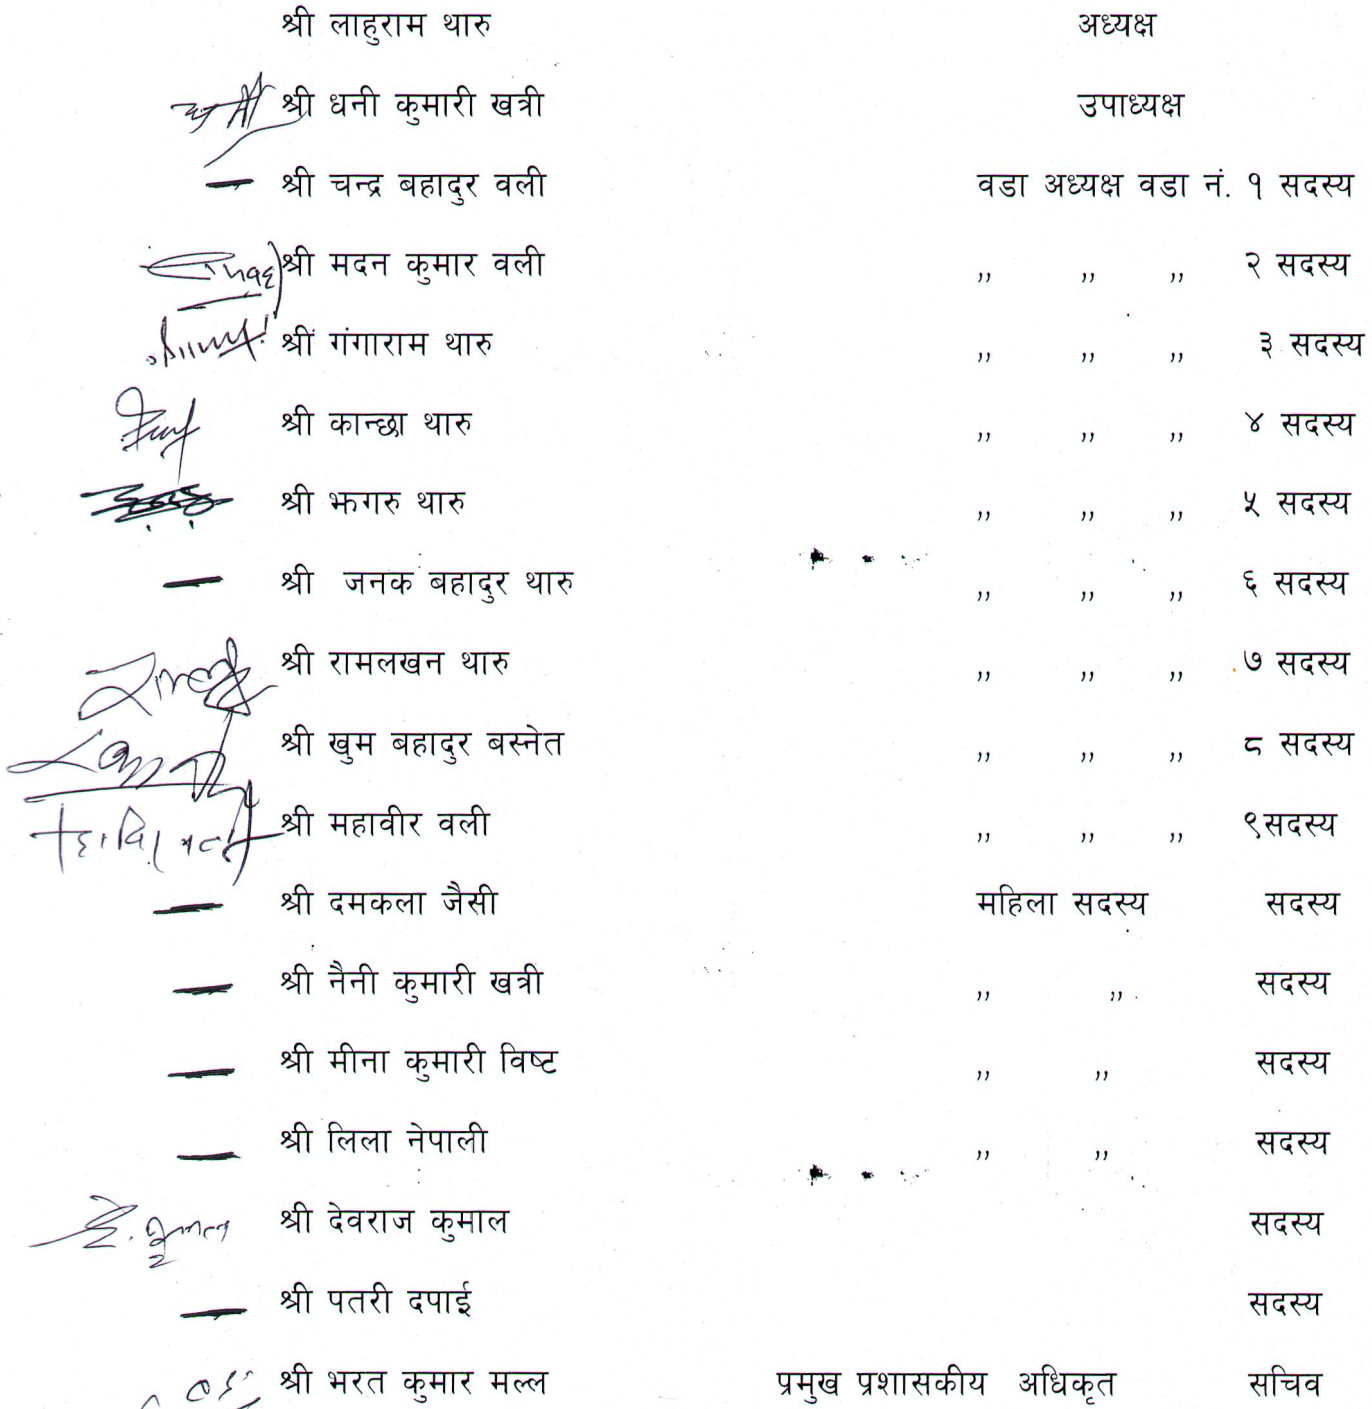 श्री लाहुराम थारु अध्यक्ष
श्री धनी कुमारी खत्री उपाध्यक्ष
श्री चन्द्र बहादुर वली वडा अध्यक्ष वडा नं. १ सदस्य
श्री मदन कुमार वली ,, ,, ,, २ सदस्य
श्रीं गंगाराम थारु ,, ,, ,, ३ सदस्य
श्री कान्छा थारु ,, ,, ,, ४ सदस्य
श्री झगरु थारु ,, ,, ,, ५ सदस्य
श्री जनक बहादुर थारु ,, ,, ,, ६ सदस्य
श्री रामलखन थारु ,, ,, ,, ७ सदस्य
श्री खुम बहादुर बस्नेत ,, ,, ,, ८ सदस्य
श्री महावीर वली ,, ,, ,, ९सदस्य
श्री दमकला जैसी महिला सदस्य सदस्य
श्री नैनी कुमारी खत्री ,, ,, सदस्य
श्री मीना कुमारी विष्ट ,, ,, सदस्य
श्री लिला नेपाली ,, ,, सदस्य
श्री देवराज कुमाल सदस्य
श्री पतरी दपाई सदस्य
श्री भरत कुमार मल्ल प्रमुख प्रशासकीय अधिकृत सचिव